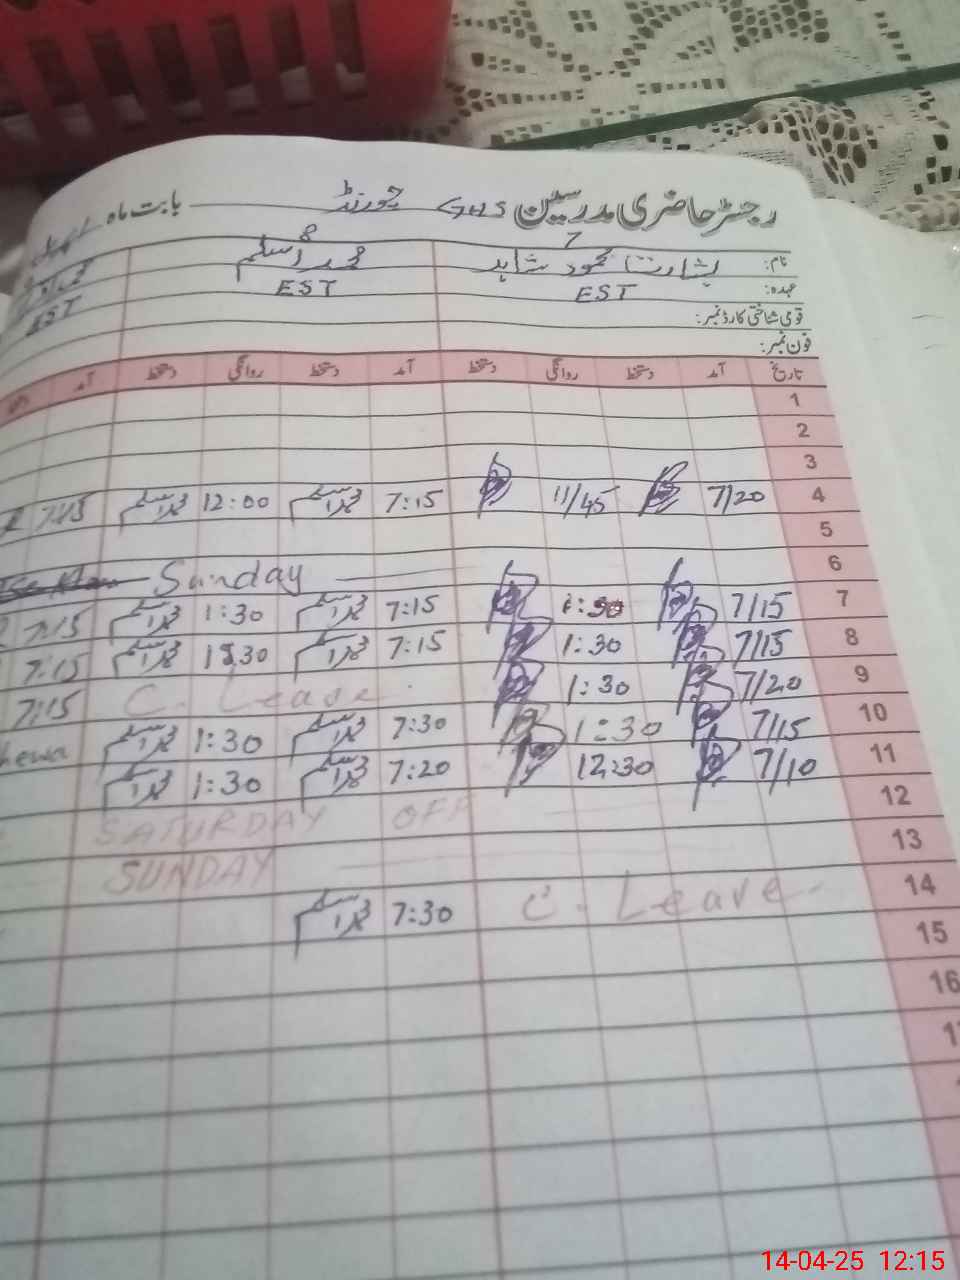 رجسٹر حاضری مدرسین GHS چورنڈ بابت ماہ
7 8
نام: بشارت محمود شاہد محمد اسلم
عہدہ: EST EST EST
قومی شناختی کارڈ نمبر:
فون نمبر:
تاریخ آمد دستخط روانگی دستخط آمد دستخط روانگی دستخط آمد
1
2
3
4 7/20 11/45 7:15 محمد اسلم 12:00 محمد اسلم 7:15
5
6 Sunday
7 7/15 1:30 7:15 محمد اسلم 1:30 محمد اسلم 7:15
8 7/15 1:30 7:15 محمد اسلم 1:30 محمد اسلم 7:15
9 7/20 1:30 C. Leave 7:15
10 7/15 1:30 7:30 محمد اسلم 1:30 محمد اسلم
11 7/10 12:30 7:20 محمد اسلم 1:30 محمد اسلم
12 SATURDAY OFF
13 SUNDAY
14 C. Leave 7:30 محمد اسلم
15
16
14-04-25 12:15